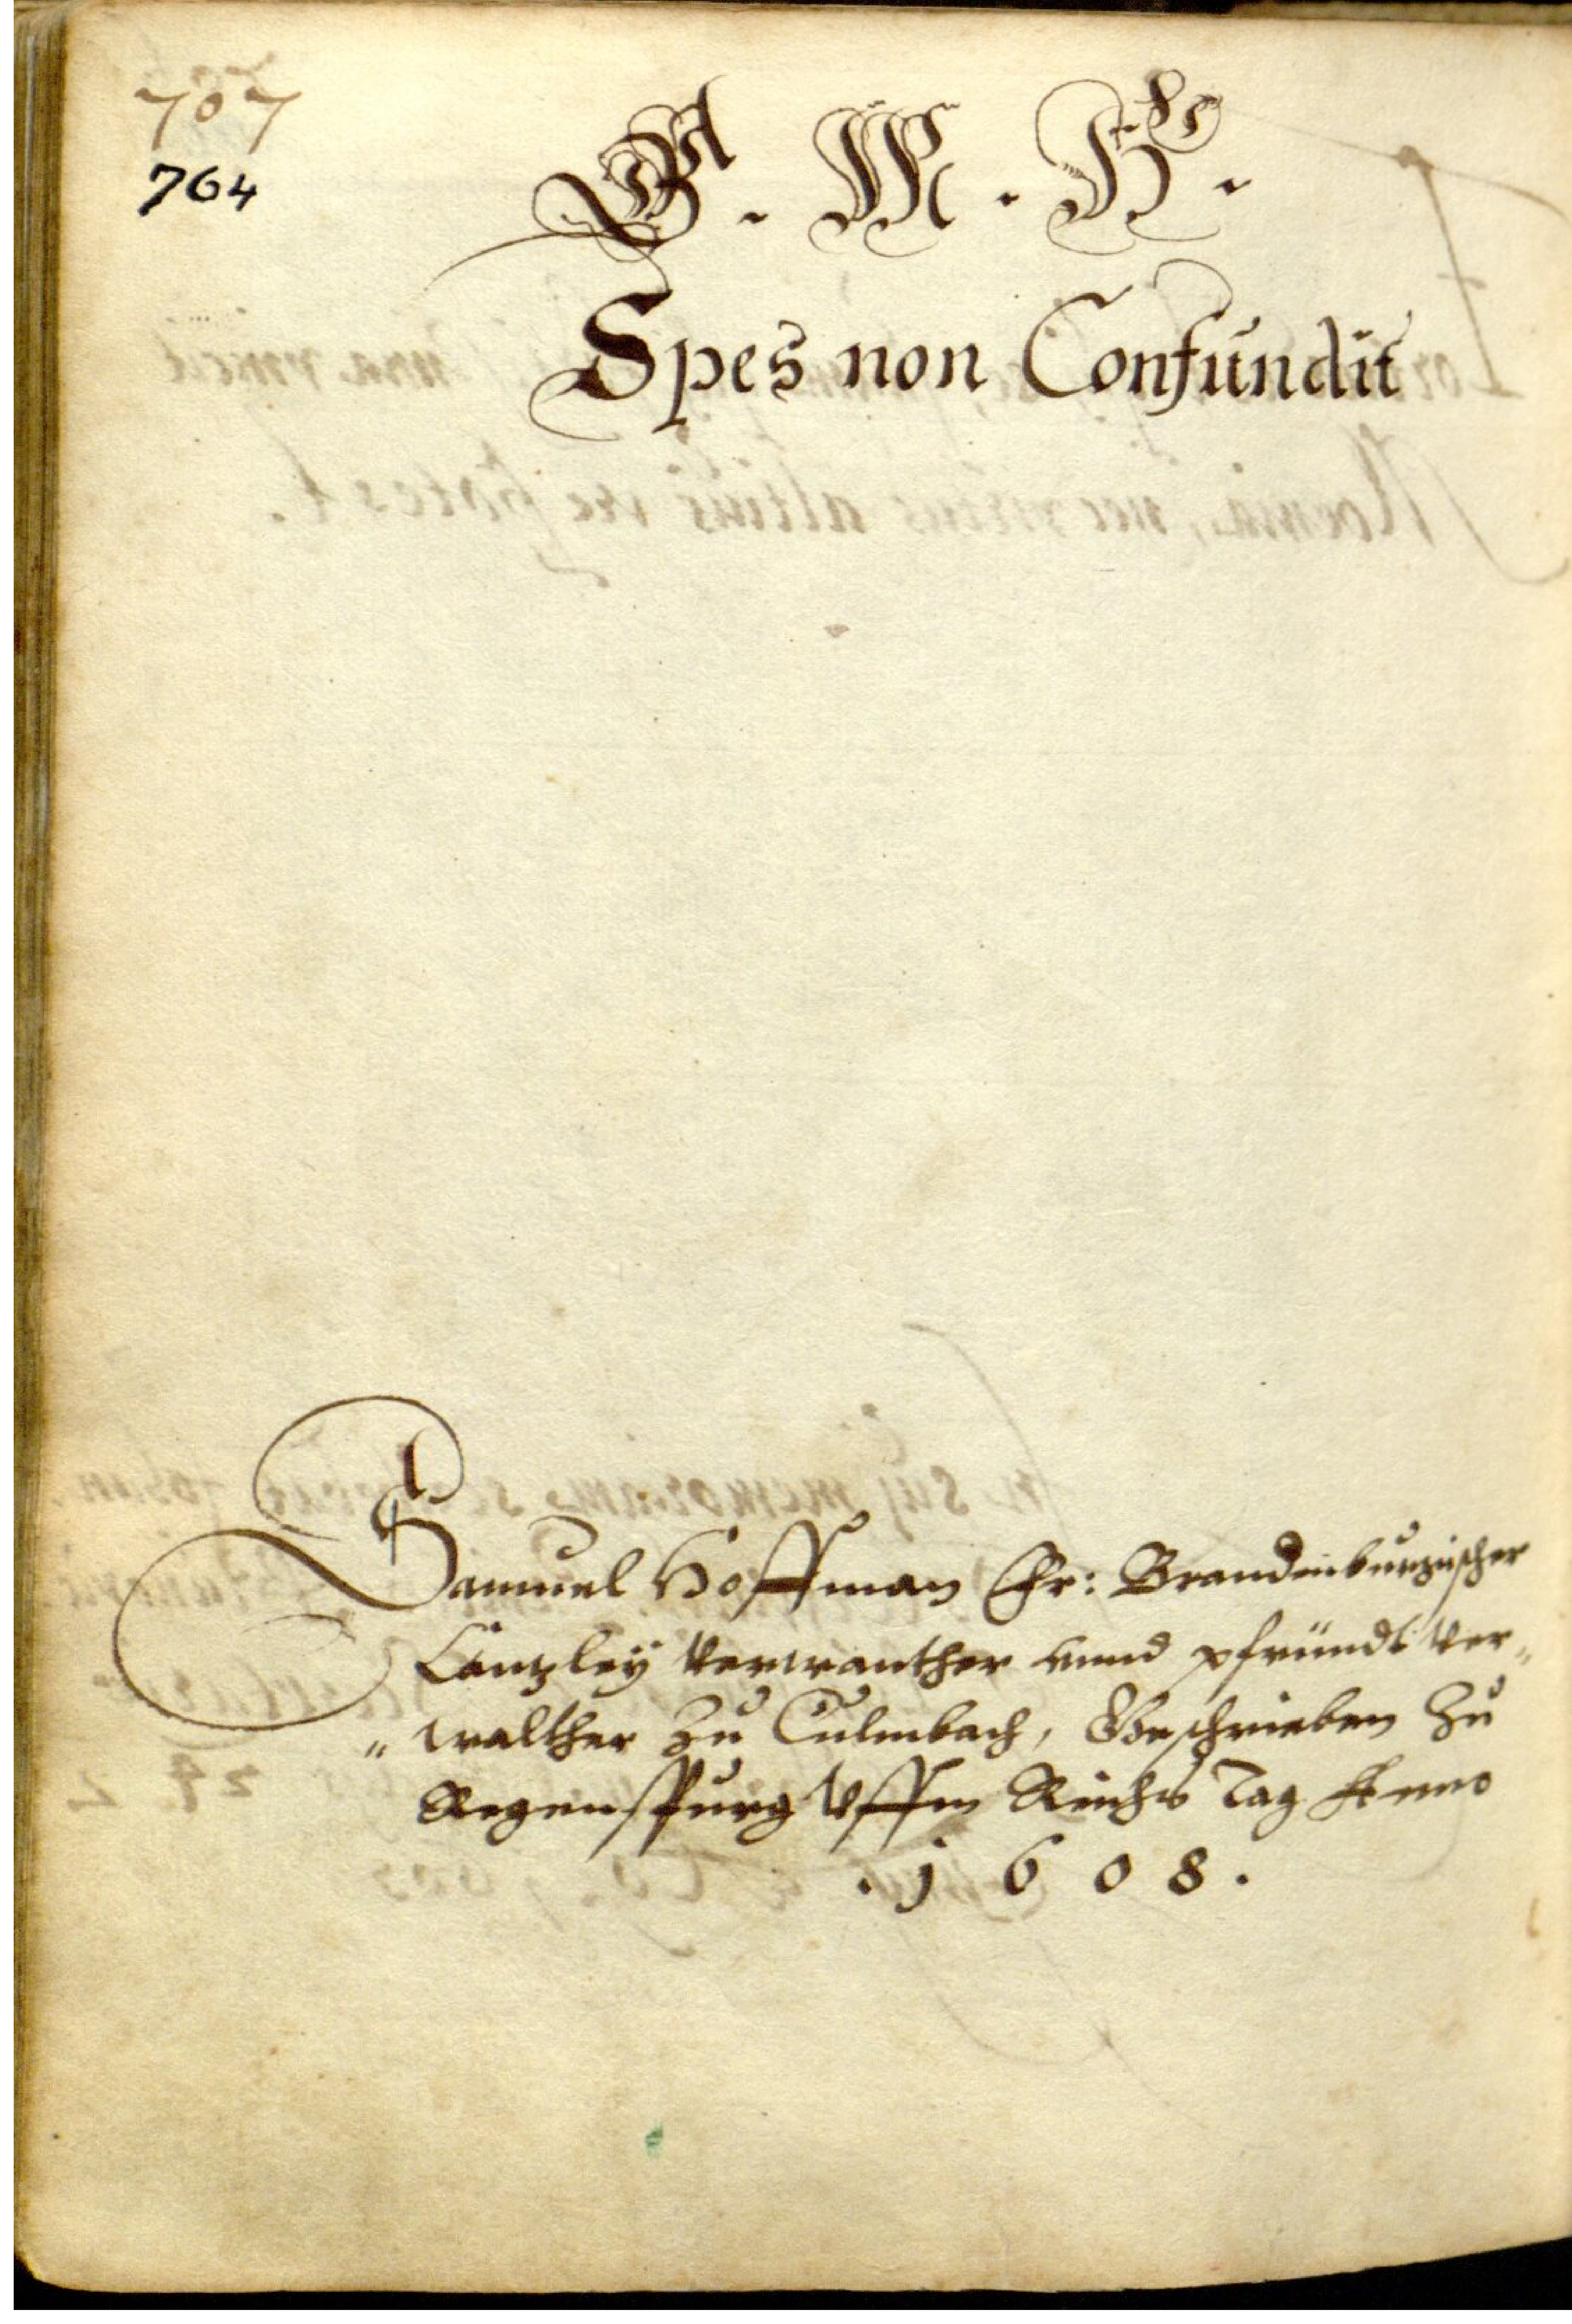 707
764
G . M . H .
Spes non Confundit
Samuel Hoffman Fr: Brandenburgischer
Cantzley Verwanther vnnd pfründt Ver„
„walther zu Culmbach, Geschrieben Zu
Regenspurg Vffm Reichs Tag Anno
. 1 6 0 8 .